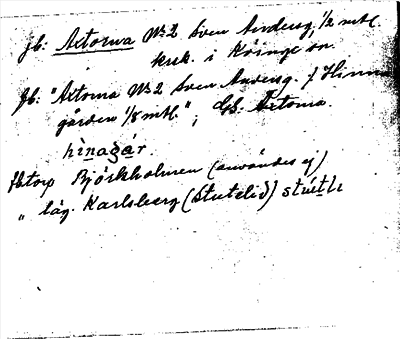 Jb: Axtorna № 2 Sven Andersg. 1/2 mtl.
krk. i Köinge sn.
Jb: "Axtorna № 2 Sven Andersg. / Hinna
gården 1/8 mtl."; Gb. Axtorna.
hìnagár.
Btorp Björkholmen (användes ej)
" läg. Karlsberg (Stutelid)